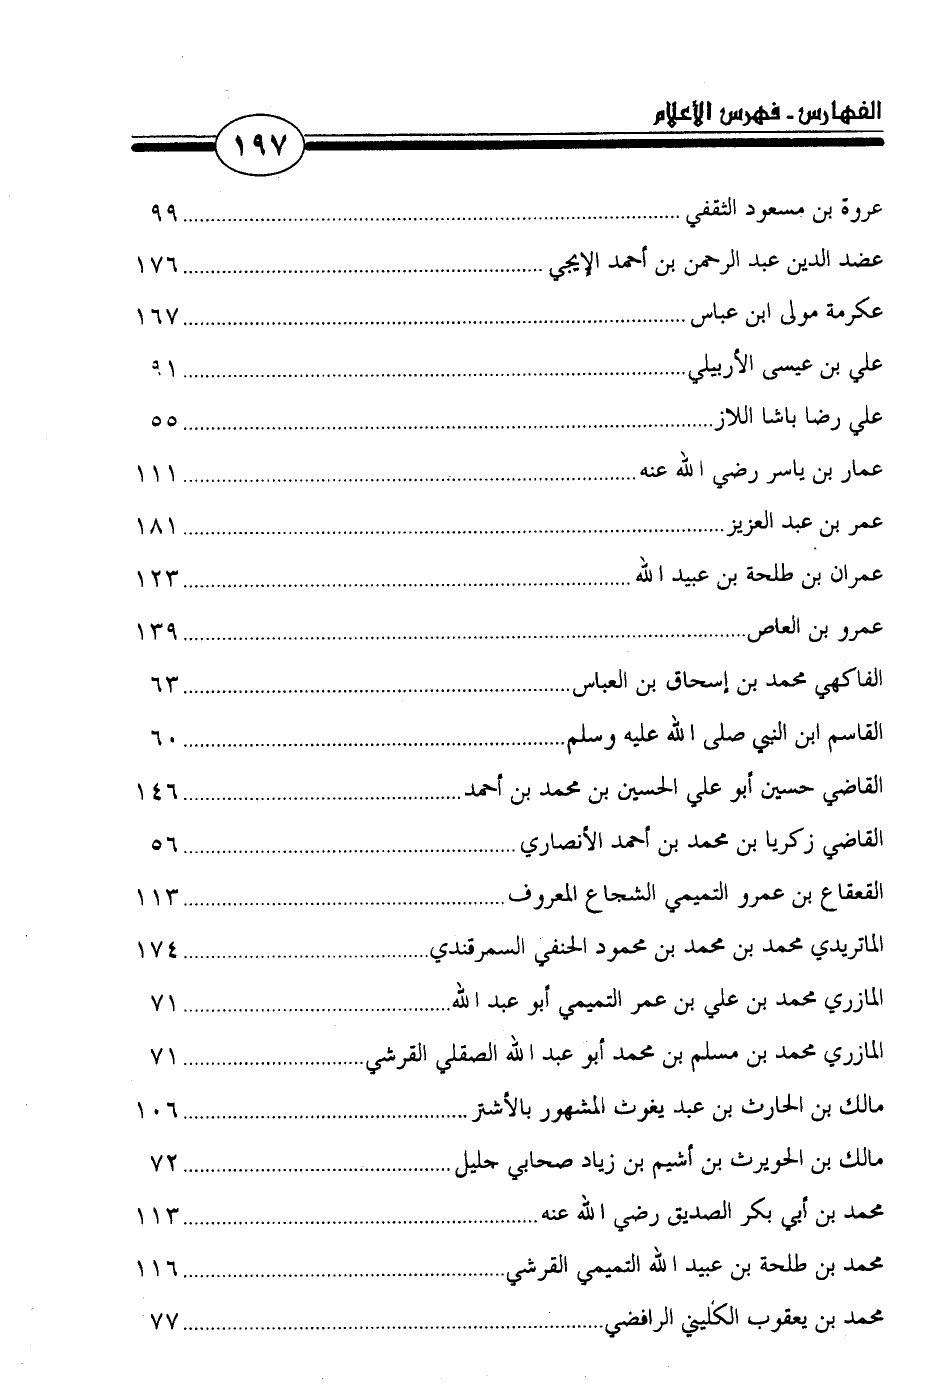 الفهارس - فهرس الأعلام
١٩٧
عروة بن مسعود الثقفي ........ ٩٩
عضد الدين عبد الرحمن بن أحمد الإيجي ........ ١٧٦
عكرمة مولى ابن عباس ........ ١٦٧
علي بن عيسى الأربيلي ........ ٩١
علي رضا باشا اللاز ........ ٥٥
عمار بن ياسر رضي الله عنه ........ ١١١
عمر بن عبد العزيز ........ ١٨١
عمران بن طلحة بن عبيد الله ........ ١٢٣
عمرو بن العاص ........ ١٣٩
الفاكهي محمد بن إسحاق بن العباس ........ ٦٣
القاسم ابن النبي صلى الله عليه وسلم ........ ٦٠
القاضي حسين أبو علي الحسين بن محمد بن أحمد ........ ١٤٦
القاضي زكريا بن محمد بن أحمد الأنصاري ........ ٥٦
القعقاع بن عمرو التميمي الشجاع المعروف ........ ١١٣
الماتريدي محمد بن محمد بن محمود الحنفي السمرقندي ........ ١٧٤
المازري محمد بن علي بن عمر التميمي أبو عبد الله ........ ٧١
المازري محمد بن مسلم بن محمد أبو عبد الله الصقلي القرشي ........ ٧١
مالك بن الحارث بن عبد يغوث المشهور بالأشتر ........ ١٠٦
مالك بن الحويرث بن أشيم بن زياد صحابي جليل ........ ٧٢
محمد بن أبي بكر الصديق رضي الله عنه ........ ١١٣
محمد بن طلحة بن عبيد الله التميمي القرشي ........ ١١٦
محمد بن يعقوب الكليني الرافضي ........ ٧٧